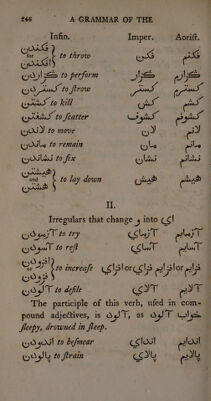 246 A GRAMMAR OF THE
Infin. Imper. Aorist.
فكندن or افكندن } to throw فكن فكنم
to perform كذار كذارم
to strow كستر كسترم
كشتن to kill كش كشم
to scatter
لاندن to move لان لانم
ماندن to remain مان مانم
نشاندن to fix نشان نشانم
هيشتن and هشتن } to lay down هيش هيشم
II.
Irregulars that change و into اي
آزمودن to try آزماي آزمايم
آسودن to rest آساي آسايم
افزودن or فزودن } to increase افزاي or فزاي افزايم or فزايم
آلودن to defile آلاي آلايم
The participle of this verb, used in com-
pound adjectives, is آلود, as خواب آلود
sleepy, drowned in sleep.
اندودن to besmear انداي اندايم
پالودن to strain پالاي پالايم